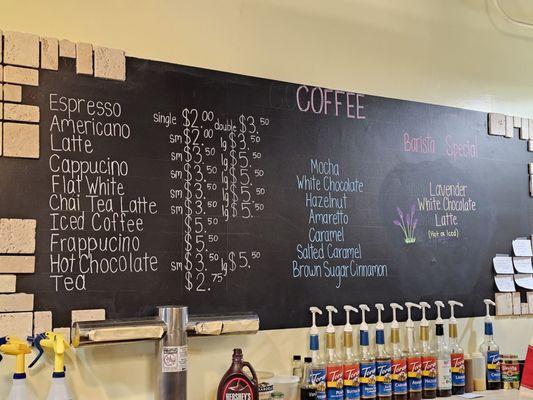 COFFEE
Espresso single $2.00 double $3.50
Americano sm $2.00 lg $3.50
Latte sm $3.50 lg $5.50
Cappucino sm $3.50 lg $5.50
Flat White sm $3.50 lg $5.50
Chai Tea Latte sm $3.50 lg $5.50
Iced Coffee $5.50
Frappucino $5.50
Hot Chocolate sm $3.50 lg $5.50
Tea $2.75
Mocha
White Chocolate
Hazelnut
Amaretto
Caramel
Salted Caramel
Brown Sugar Cinnamon
Barista Special
Lavender
White Chocolate
Latte
(Hot or Iced)
HERSHEY'S
Torani
Torani
Torani
Torani
Torani
Torani
Torani
Torani